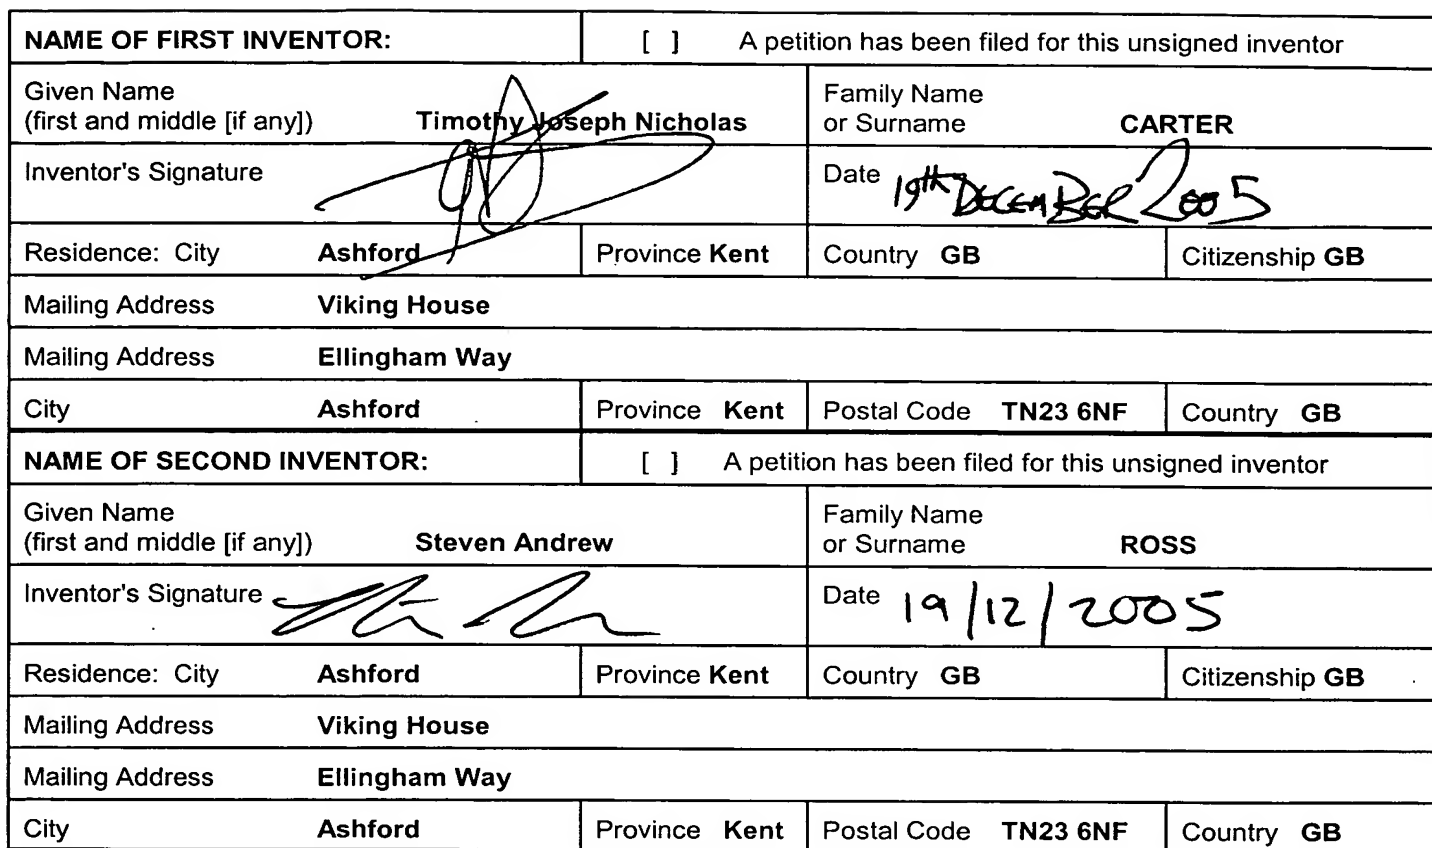 NAME OF FIRST INVENTOR: [ ] A petition has been filed for this unsigned inventor
Given Name
(first and middle [if any]) Timothy Joseph Nicholas
Family Name
or Surname CARTER
Inventor's Signature
Date 19th DECEMBER 2005
Residence: City Ashford Province Kent Country GB Citizenship GB
Mailing Address Viking House
Mailing Address Ellingham Way
City Ashford Province Kent Postal Code TN23 6NF Country GB
NAME OF SECOND INVENTOR: [ ] A petition has been filed for this unsigned inventor
Given Name
(first and middle [if any]) Steven Andrew
Family Name
or Surname ROSS
Inventor's Signature
Date 19/12/2005
Residence: City Ashford Province Kent Country GB Citizenship GB
Mailing Address Viking House
Mailing Address Ellingham Way
City Ashford Province Kent Postal Code TN23 6NF Country GB